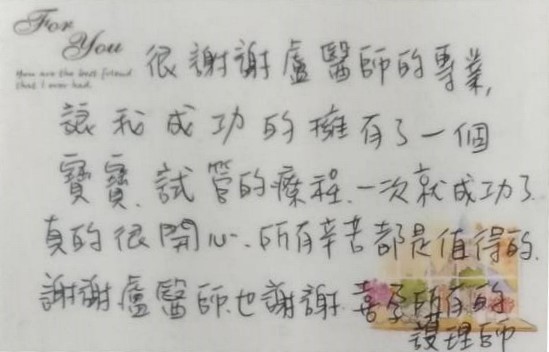 For
You
You are the best friend
that I ever had.
很謝謝盧醫師的專業,
讓我成功的擁有了一個
寶寶.試管的療程.一次就成功了.
真的很開心.所有辛苦都是值得的.
謝謝盧醫師.也謝謝.喜孕所有的
護理師